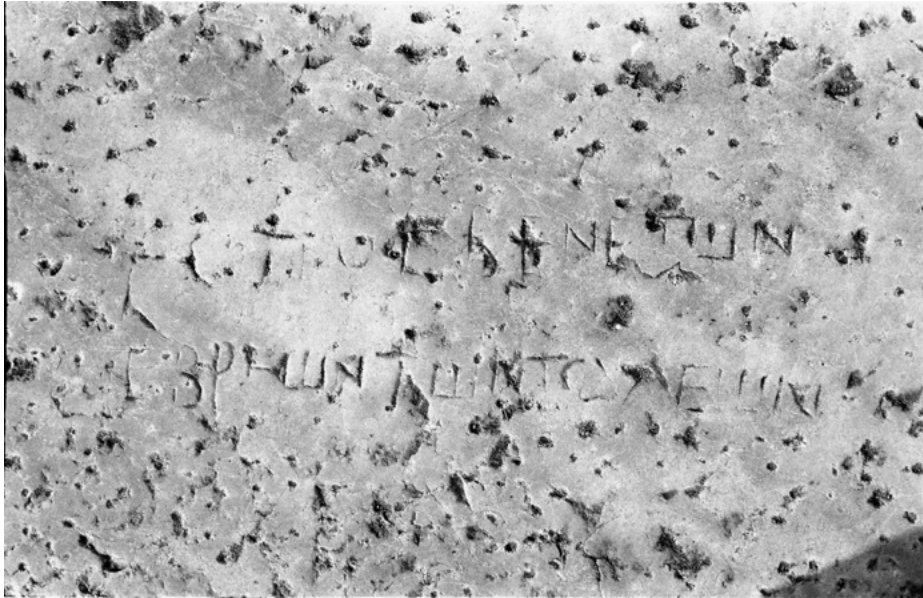 ΤΟΠΟϹ ΒΕΝΕΤΩΝ
ΕΒΡΕΩΝ ΤΩΝ ΠΑΛΕΙΩΝ